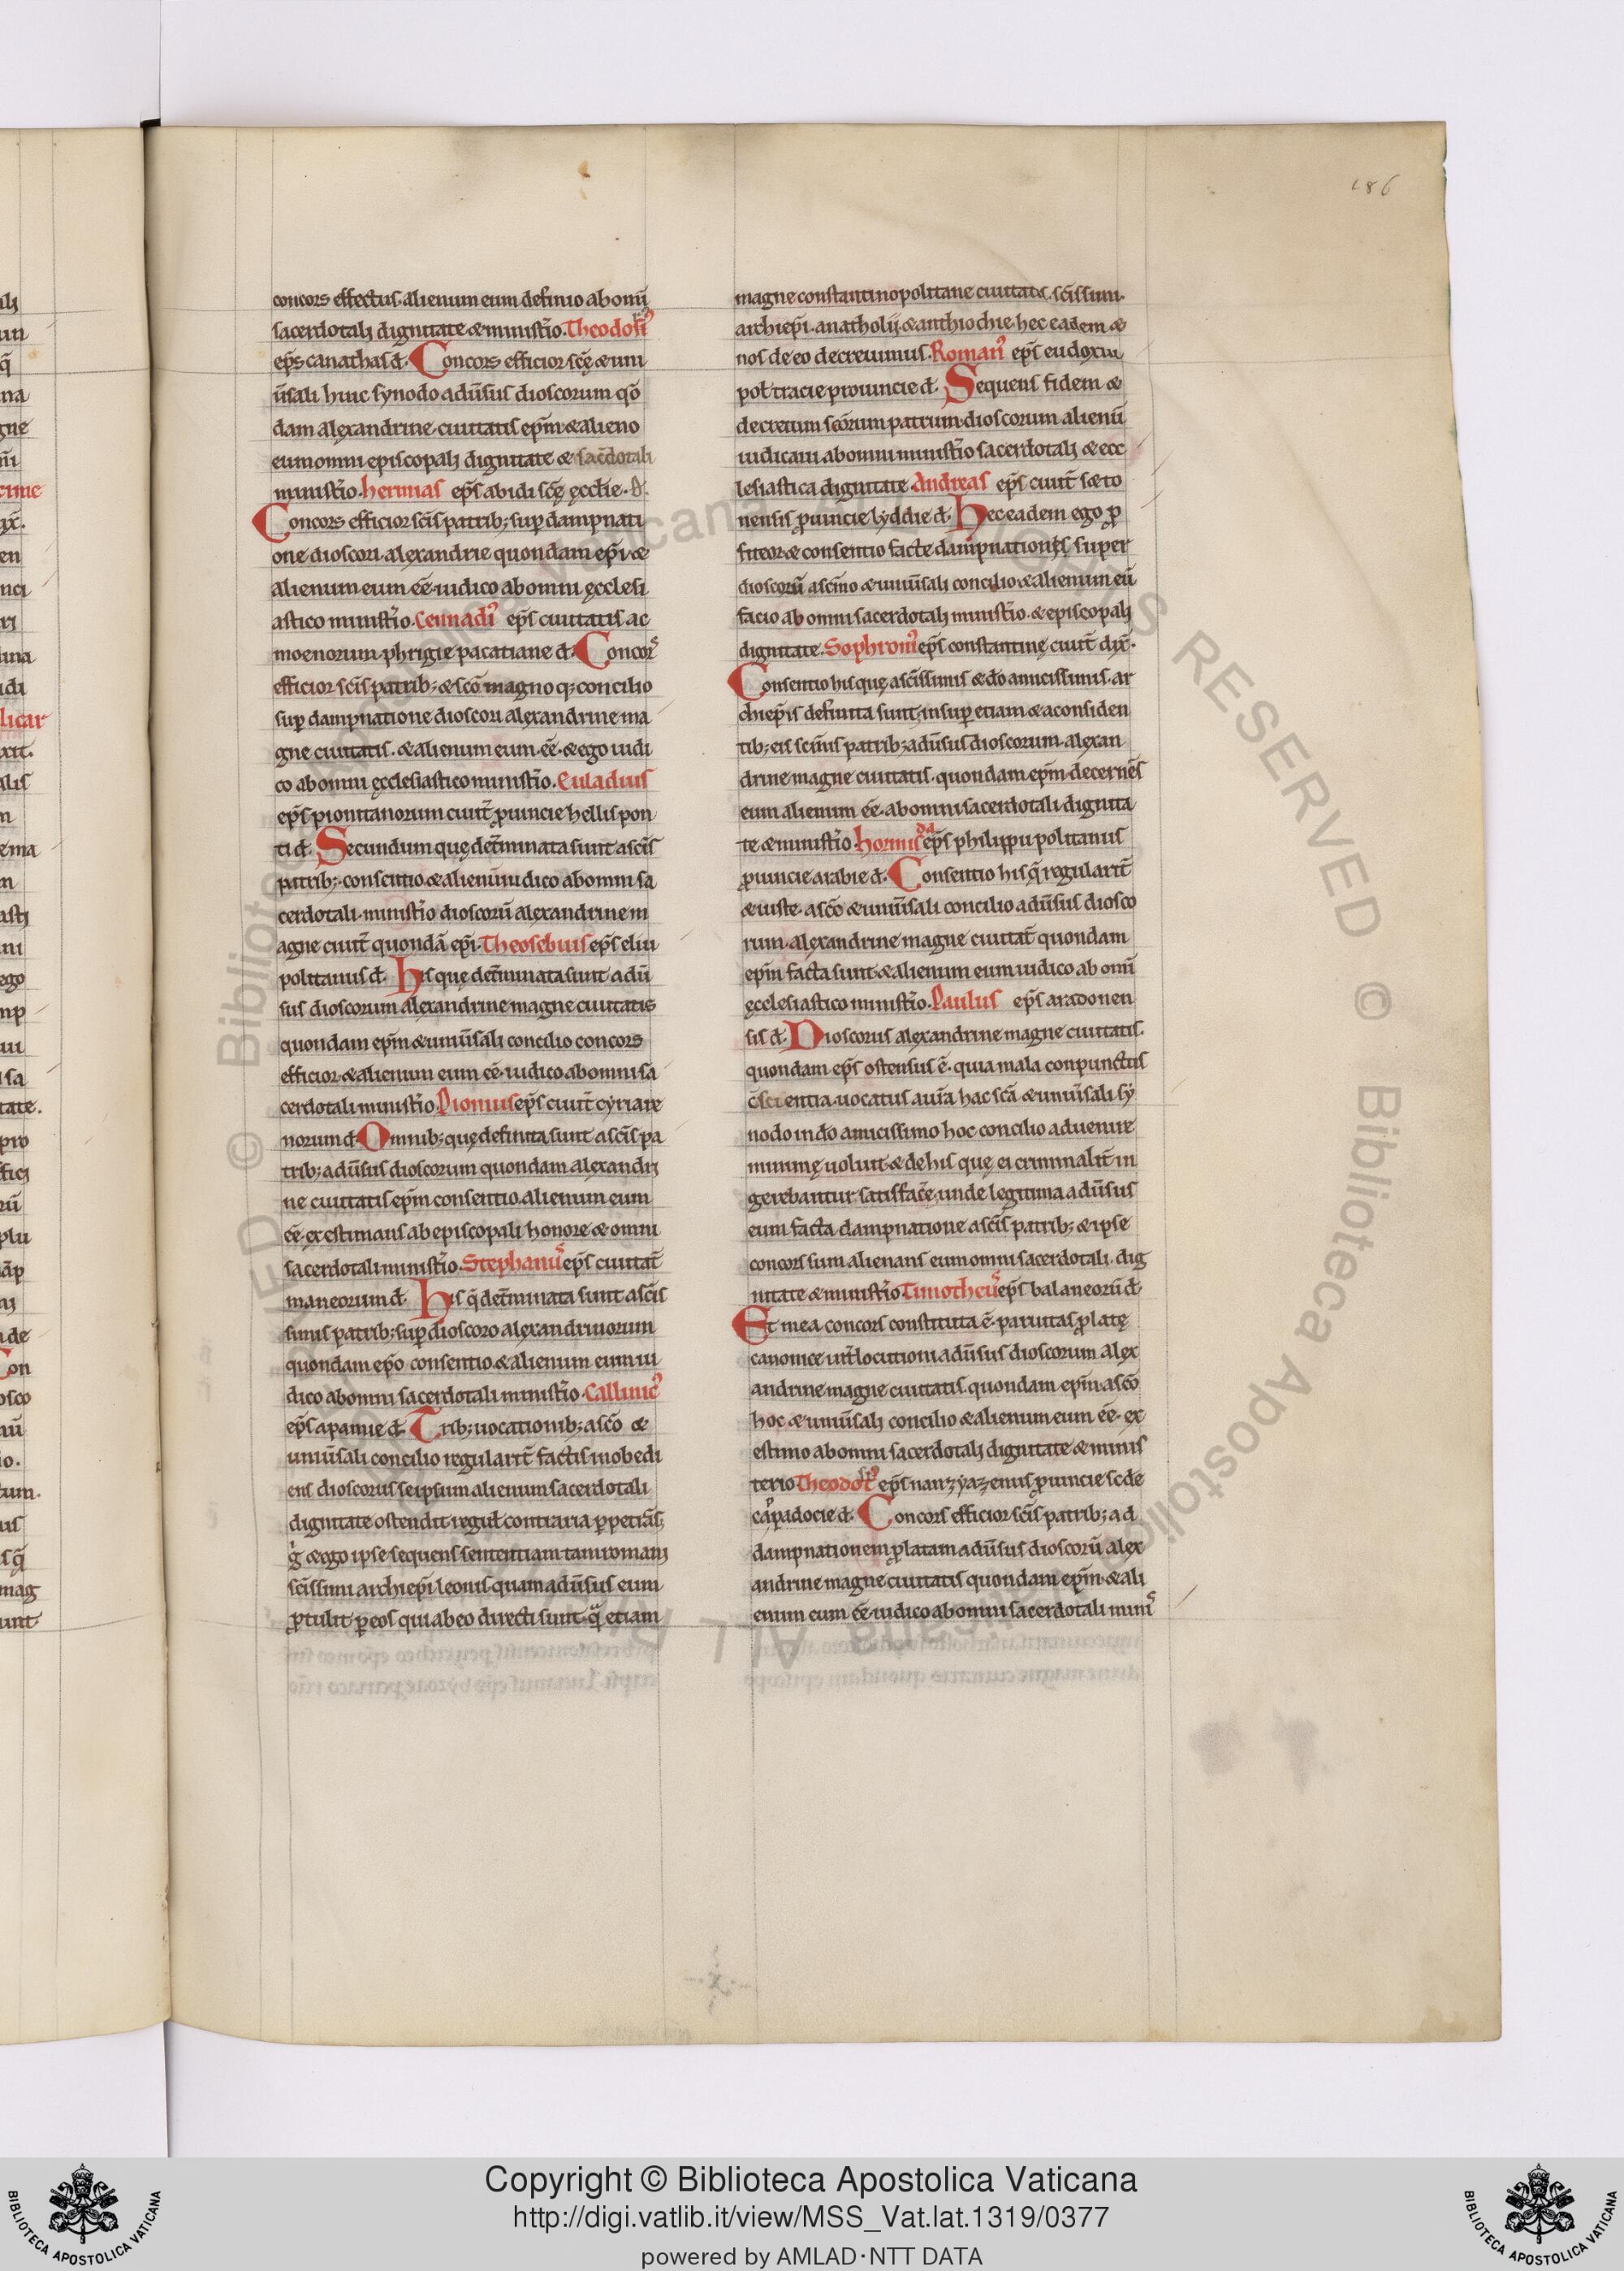 186
concors effectus. alienum eum definio ab om̄i
sacerdotali dignitate & minist̄io. Theodosi⁹
ep̄s canathas d̄. Concors efficior sc̄ę & uni
ūsali huic synodo adūsus dioscorum qō
dam alexandrine ciuitatis ep̄m & alieno
eum omni episcopali dignitate & sac̄dotali
minist̄io. hermias ep̄s abidi sc̄ę ęcclie. d̄.
Concors efficior sc̄is patrib; sup dampnati
one dioscori alexandrie quondam ep̄i &
alienum eum ēē iudico ab omni ęcclesi
astico minist̄io. Cennadi⁹ ep̄s ciuitatis ac
moenorum phrigie pacatiane d̄. Concor
efficior sc̄is patrib; & sc̄o magno q; concilio
sup dampnatione dioscori alexandrine ma
gne ciuitatis. & alienum eum ēē. & ego iudi
co ab omni ęcclesiastico minist̄io. Euladius
ep̄s pionitanorum ciuit̄ ꝓuincie hellispon
ti d̄. Secundum quę det̄minata sunt a sc̄is
patrib;. consentio & alienū iudico ab omni sa
cerdotali. minist̄io dioscorū alexandrine m
agne ciuit̄ quondā ep̄i. Theosebius ep̄s eliu
politanus d̄. His quę det̄minata sunt adū
sus dioscorum alexandrine magne ciuitatis
quondam ep̄m & uniūsali concilio concors
efficior & alienum eum ēē. iudico ab omni sa
cerdotali minist̄io. Pionius ep̄s ciuit̄ cyriare
norum d̄. Omnib; quę definita sunt a sc̄is pa
trib; adūsus dioscorum quondam alexandri
ne ciuitatis ep̄m consentio. alienum eum
ēē. existimans ab episcopali honore & omni
sacerdotali minist̄io. Stephanus ep̄s ciuitat̄
maneorum d̄. His q̄ det̄minata sunt a sc̄is
simis patrib; sup dioscoro alexandrinorum
quondam ep̄o consentio. & alienum eum iu
dico ab omni sacerdotali minist̄io. Callinic⁹
ep̄s apamie d̄. Trib; uocationib; a sc̄o &
uniūsali concilio regularit̄ factis inobedi
ens dioscorus se ipsum alienum sacerdotali
dignitate ostendit regul̄ contraria ꝑpetrās;
g̊ & ego ipse sequens sententiam tam romani
sc̄issimi archiep̄i leonis. quam adūsus eum
ꝓtulit ꝑ eos qui ab eo directi sunt. q̄ etiam
magne constantinopolitane ciuitatis. sc̄issimi.
archiep̄i. anatholij. & anthiochie. hec eadem &
nos de eo decreuimus. Roman⁹ ep̄s eudoxiu
pol̄ tracie prouincie d̄. Sequens fidem &
decretum sc̄orum patrum. dioscorum alienū
iudicaui ab omni minist̄io sacerdotali & ecc
lesiastica dignitate. Andreas ep̄s ciuit̄ sæto
nensis ꝓuincie lyddie d̄. Hec eadem ego ꝓ
fiteor & consentio facte dampnationis super
dioscorū a sc̄mo & uniūsali concilio & alienum eū
facio ab omni sacerdotali minist̄io. & episcopali
dignitate. Sophroni⁹ ep̄s constantinę ciuit̄ dix̄.
Consentio his quę a sc̄issimis & d̄o amicissimis. ar
chiep̄is definita sunt, insup etiam & a considen
tib; eis sc̄issimis patrib; adūsus dioscorum. alexan
drine magne ciuitatis. quondam ep̄m. decernēs
eum alienum ēē. ab omni sacerdotali dignita
te & minist̄io. hormisda ep̄s philippu politanus
ꝓuincie arabie d̄. Consentio his q̄ regularit̄
& iuste. a sc̄o & uniūsali concilio adūsus diosco
rum. alexandrine magne ciuitat̄ quondam
ep̄m facta sunt. & alienum eum iudico ab om̄i
ęcclesiastico minist̄io. Paulus ep̄s aradonen
sis d̄. Dioscorus alexandrine magne ciuitatis.
quondam ep̄s ostensus ē. quia mala conpunctus
c̄scientia. uocatus auīa hac sc̄a & uniūsali sy
nodo in d̄o amicissimo hoc concilio aduenire
minimę uoluit. & de his que ei criminalit̄ in
gerebantur. satisfac̄e. unde legitima adūsus
eum facta dampnatione a sc̄is patrib; & ipse
concors sum alienans eum omni sacerdotali. dig
nitate & minist̄io. Timotheus ep̄s balaneorū d̄.
Et mea concors constituta ē. paruitas ꝓlatę
canonice int̄locutioni adūsus dioscorum alex
andrine magne ciuitatis. quondam ep̄m. a sc̄o
hoc & uniūsali concilio & alienum eum ēē. ex
estimo ab omni sacerdotali dignitate & minis
terio. Theodot⁹ ep̄s nanzyazenus ꝓuincie sc̄de
cap̄padocie d̄. Concors efficior sc̄is patrib; ad
dampnationem ꝓlatam adūsus dioscorū alex
andrine magne ciuitatis quondam ep̄m. & ali
enum eum ēē. iudico ab omni sacerdotali mini
© Biblioteca Apostolica Vaticana ALL RIGHTS RESERVED
Copyright © Biblioteca Apostolica Vaticana
http://digi.vatlib.it/view/MSS_Vat.lat.1319/0377
powered by AMLAD·NTT DATA
BIBLIOTECA APOSTOLICA VATICANA
BIBLIOTECA APOSTOLICA VATICANA